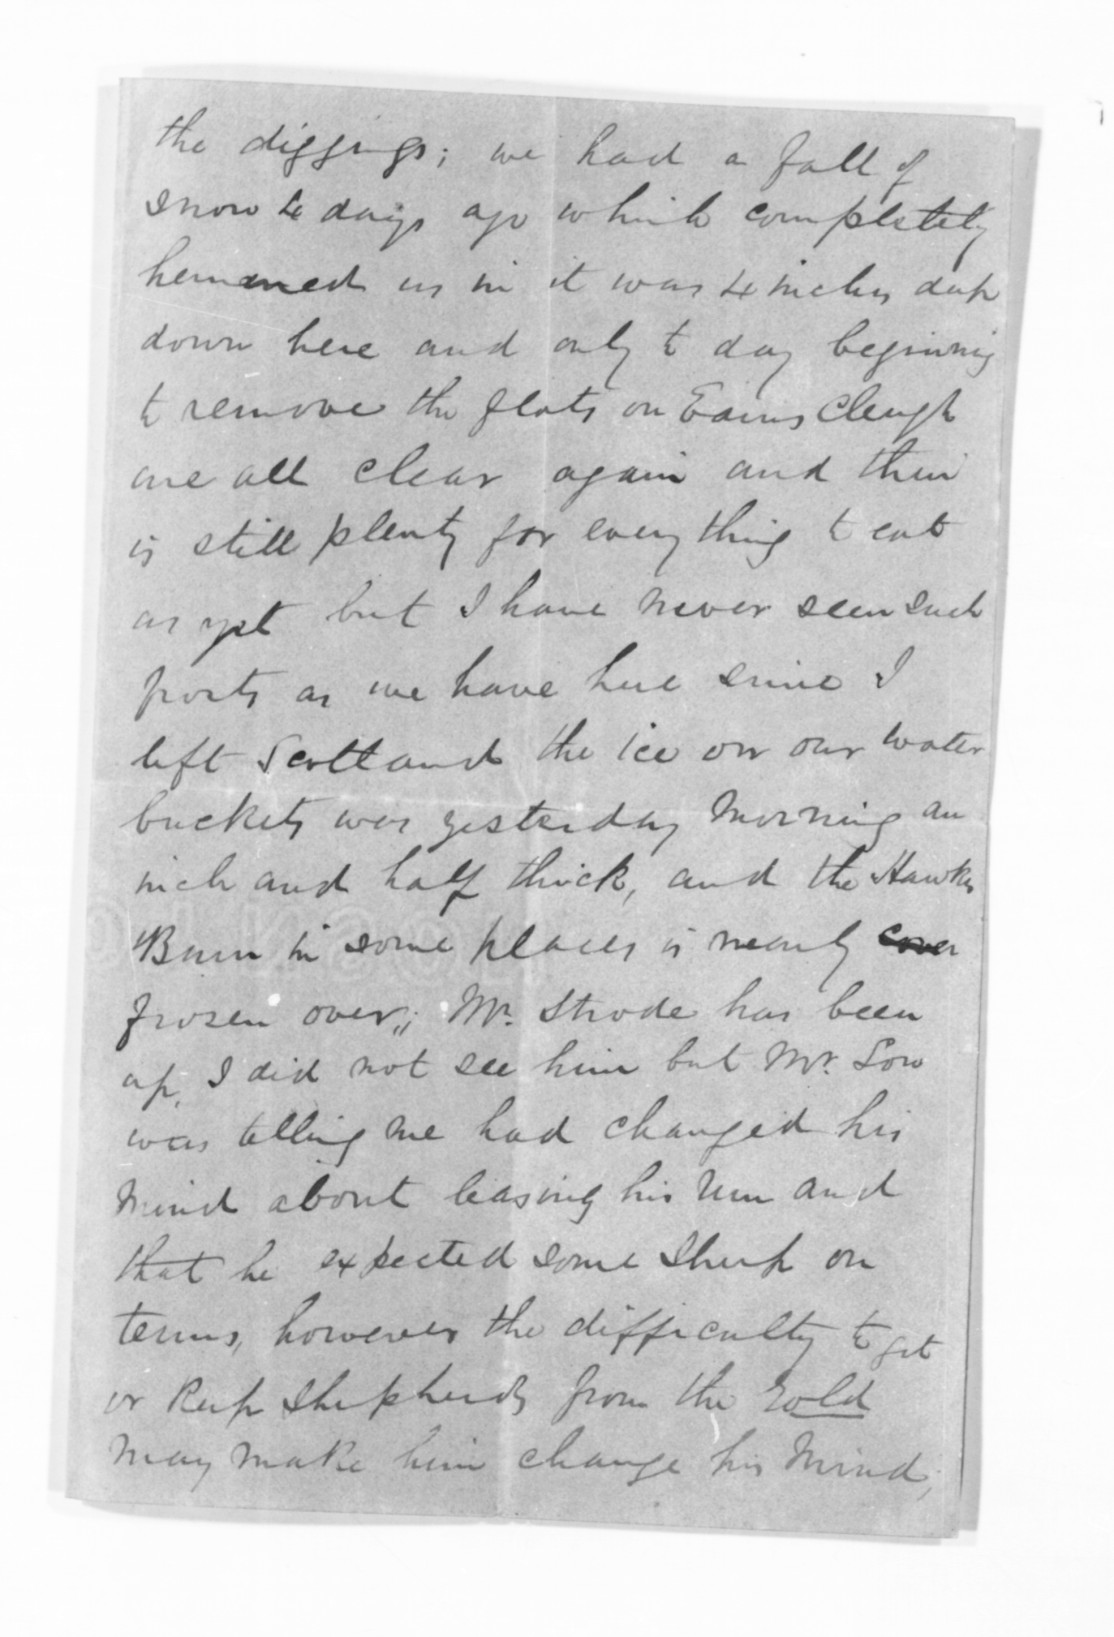 the diggings; we had a fall of
snow 4 days ago which completely
hemmed us in it was 4 inches deep
down here and only to day beginning
to remove the flats on Earns cleugh
are all clear again and their
is still plenty for every thing to eat
as yet but I have never seen such
frosts as we have here since I
left Scotland the ice on our water
buckets was yesterday Morning an
inch and half thick, and the Hawks
Burn in some places is nearly cover
frozen over,; Mr. Strode has been
up, I did not see him but Mr. Low
was telling me had changed his
Mind about leasing his run and
that he expected some sheep on
terms, however the difficulty to get
or keep shepherds from the Gold
may make him change his Mind,